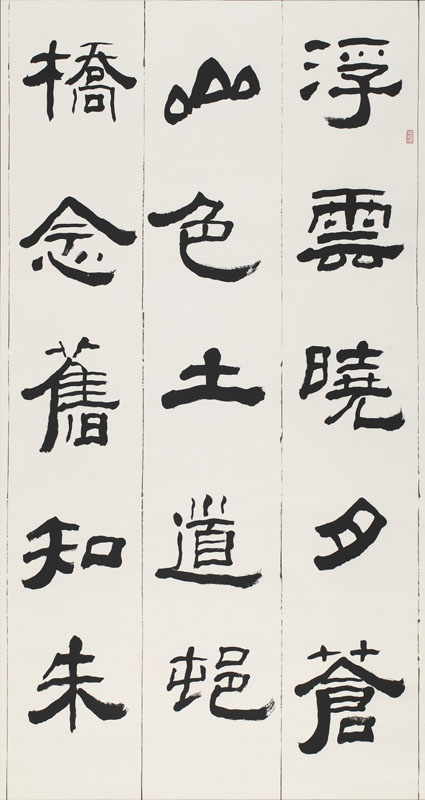 浮雲曉夕蒼
山色土道邨
橋念舊知朱